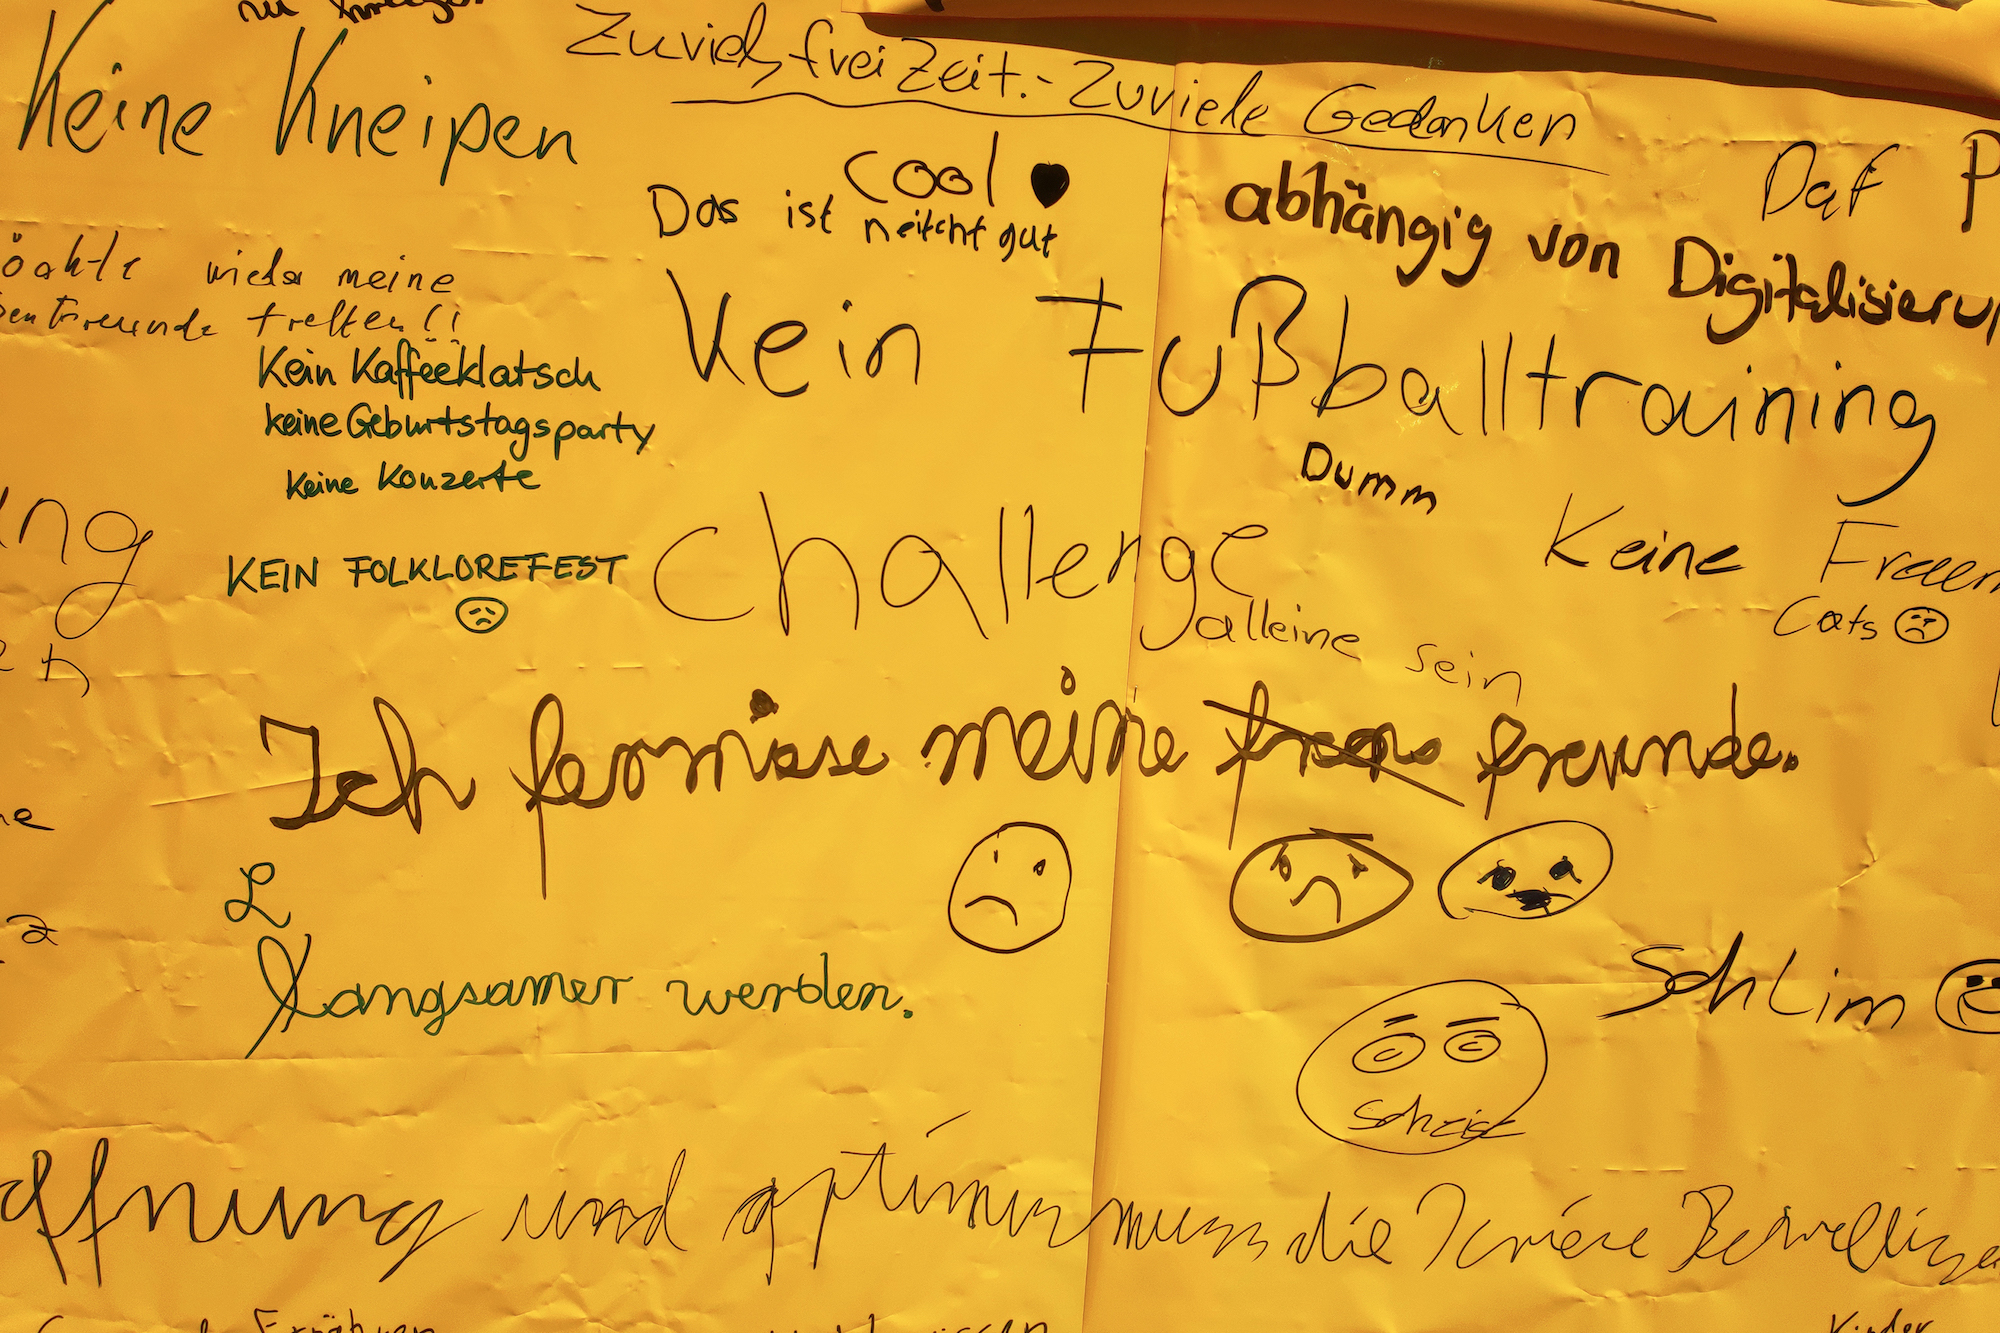 Keine Kneipen
Zuviel freizeit.- Zuviele Gedanken
cool
Das ist neitcht gut
abhängig von Digitalisieru
Daf P
wieder meine
Freunde treffen!!
Kein Kaffeeklatsch
keine Geburtstagsparty
keine Konzerte
Kein Fußballtraining
Dumm
ng
KEIN FOLKLOREFEST
challenge
Keine
Cats
alleine sein
Ich fermisse meine freunde.
L
Langsamer werden.
Schlim
Scheise
offnung und optimismus die
Ernähren
Kinder